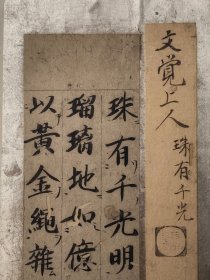 文覚上人
珠有千光
珠有千光明
瑠璃地如億
以黃金繩雜